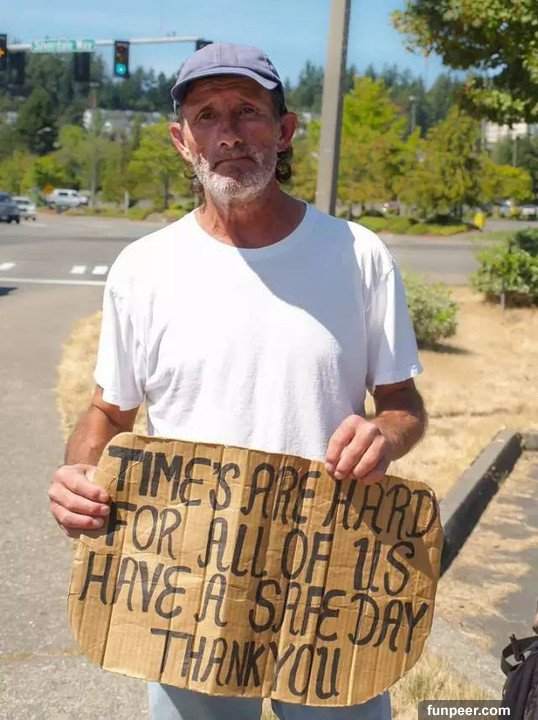 TIME'S ARE HARD
FOR ALL OF US
HAVE A SAFE DAY
THANK YOU
funpeer.com